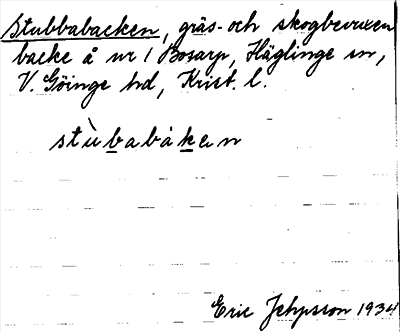 Stubbabacken, gräs- och skogbevuxen
backe å nr 1 Bosarp, Häglinge sn,
V. Göinge hd, Krist. l.
stùbabàken
Eric Jeppsson 1934